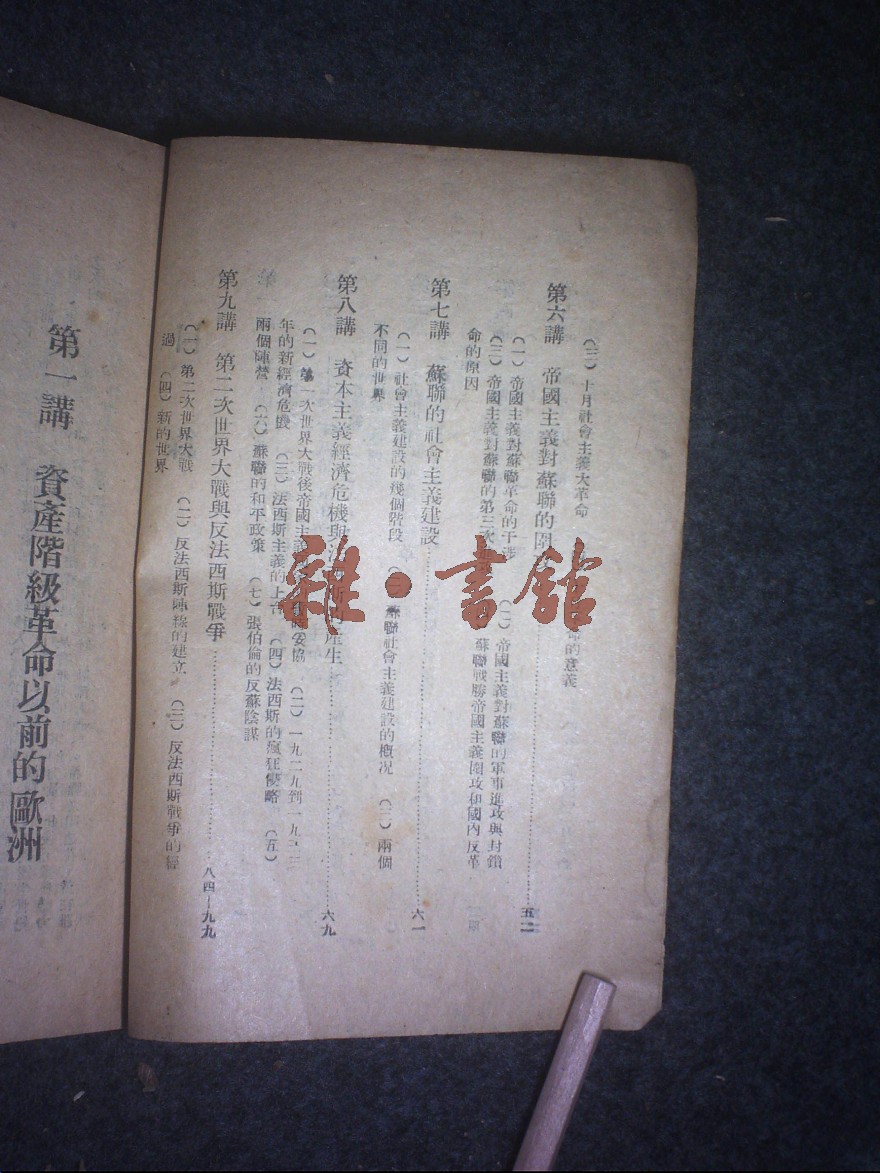 (三)十月社會主義大革命 命的意義
第六講 帝國主義對蘇聯的圍 五二
(一)帝國主義對蘇聯革命的干涉 (二)帝國主義對蘇聯的軍事進攻與封鎖
(三)帝國主義對蘇聯的第三次 蘇聯戰勝帝國主義圍攻和國內反革
命的原因
第七講 蘇聯的社會主義建設 六一
(一)社會主義建設的幾個階段 蘇聯社會主義建設的概況 (三)兩個
不同的世界
第八講 資本主義經濟危機與法 產生 六九
(一)第一次世界大戰後帝國主 妥協 (二)一九二九到一九三三
年的新經濟危機 (三)法西斯主義的上台 (四)法西斯的瘋狂侵略 (五)
兩個陣營 (六)蘇聯的和平政策 (七)張伯倫的反蘇陰謀
第九講 第二次世界大戰與反法西斯戰爭 八四—九九
(一)第二次世界大戰 (二)反法西斯陣線的建立 (三)反法西斯戰爭的經
過 (四)新的世界
第一講 資產階級革命以前的歐洲
雜·書館